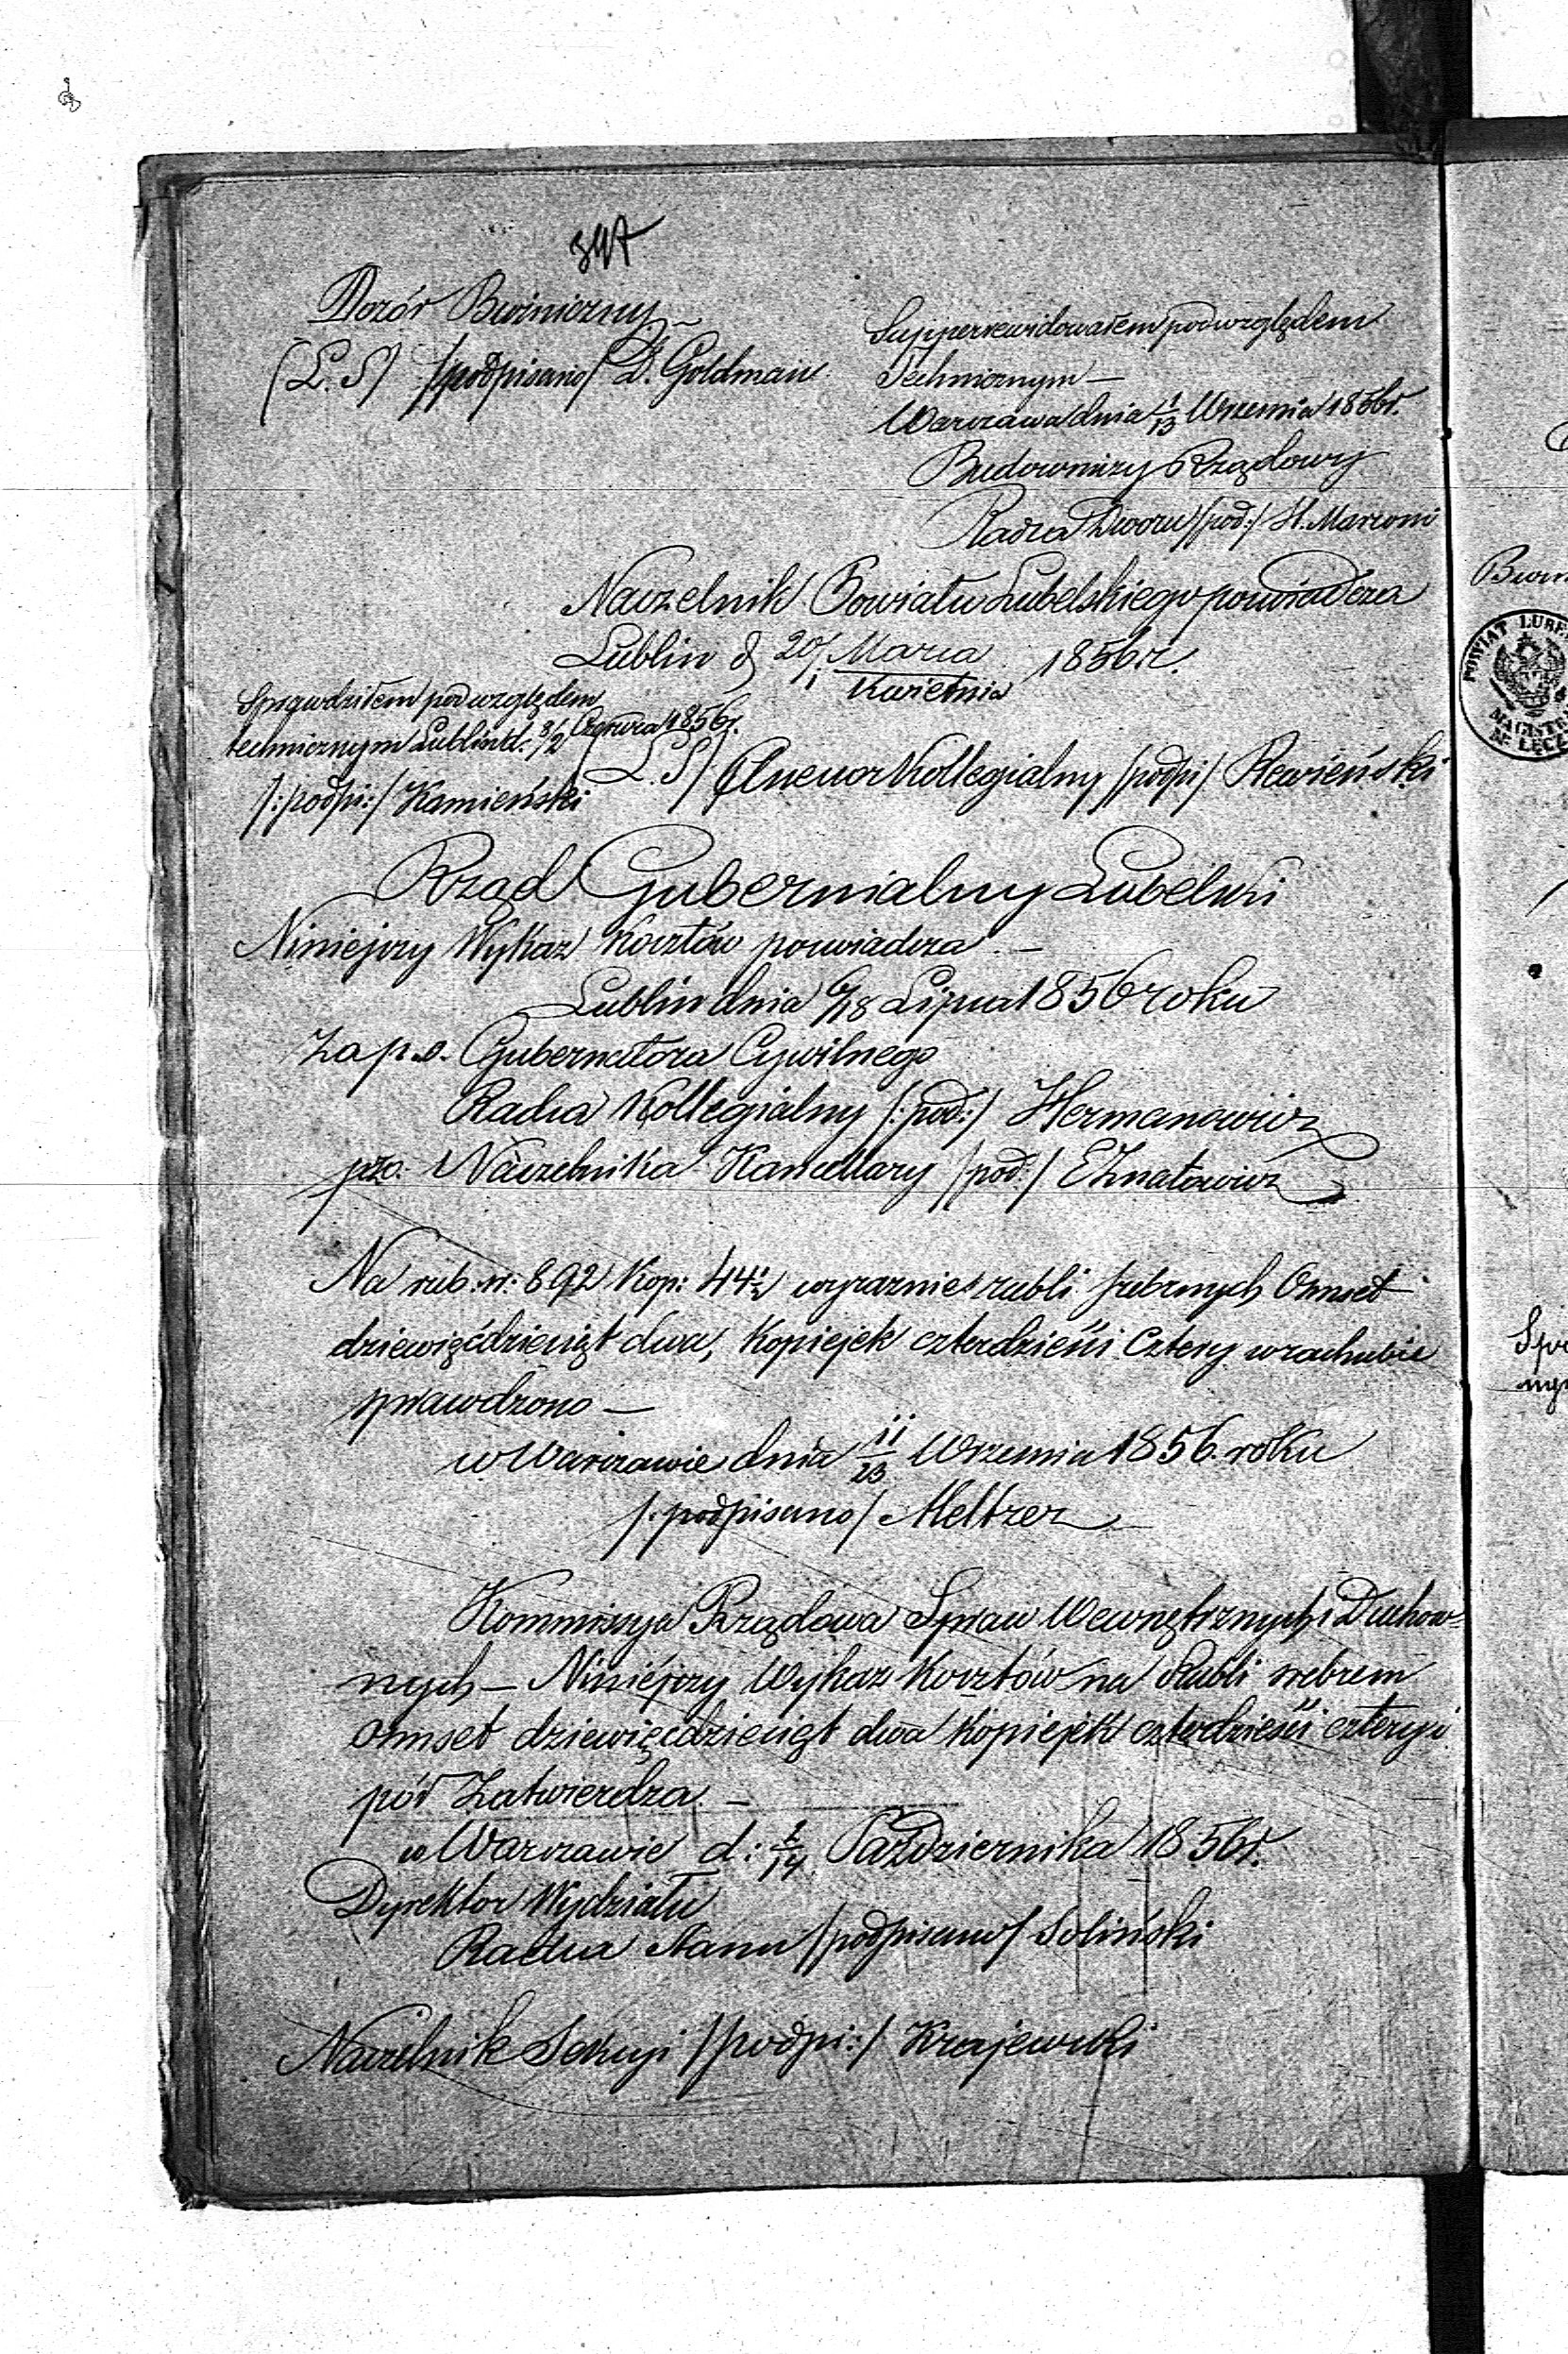 347
Dozór Bożniczny
(L.S) /podpisano/ D. Goldman
Supperrewidowałem pod względem
Technicznym —
Warszawa dnia 1/13 Września 1856 r.
Budowniczy Rządowy
Radca Dworu /pod:/ H. Marconi
Naczelnik Powiatu Lubelskiego poświadcza
Lublin d. 20/1 Marca/Kwietnia 1856 r.
Sprawdziłem pod względem
technicznym Lublin d. Czerwca 1856 r.
/:podpi:/ Kamieński
(L.S) Assessor Kollegialny /podpi/
Rząd Gubernialny Lubelski
Niniejszy Wykaz Kosztów poświadcza —
Lublin dnia 6/18 Lipca 1856 roku
Za p.o. Gubernatora Cywilnego
Radca Kollegialny /:pod:/ Hermanowicz
p.o. Naczelnika Kancellary /pod:/ E Znatowicz
Na rub. sr: 892 Kop: 44½ wyraźnie rubli srebrnych Ośmset
dziewięćdziesiąt dwa, Kopiejek czterdzieści cztery w rachubie
sprawdzono —
w Warszawie dnia 11/23 Września 1856. roku
/:podpisano/ Meltzer
Kommissya Rządowa Spraw Wewnętrznych i Duchow=
nych — Niniejszy Wykaz Kosztów na Rubli srebrem
ośmset dziewięćdziesiąt dwa Kopiejek czterdzieści cztery i
pół Zatwierdza. —
w Warszawie d: 2/14 Października 1856 r.
Dyrektor Wydziału
Radca Stanu /podpisano/ Soliński
Naczelnik Sekcyi /podpi:/ Krajewski
POWIAT LUBE